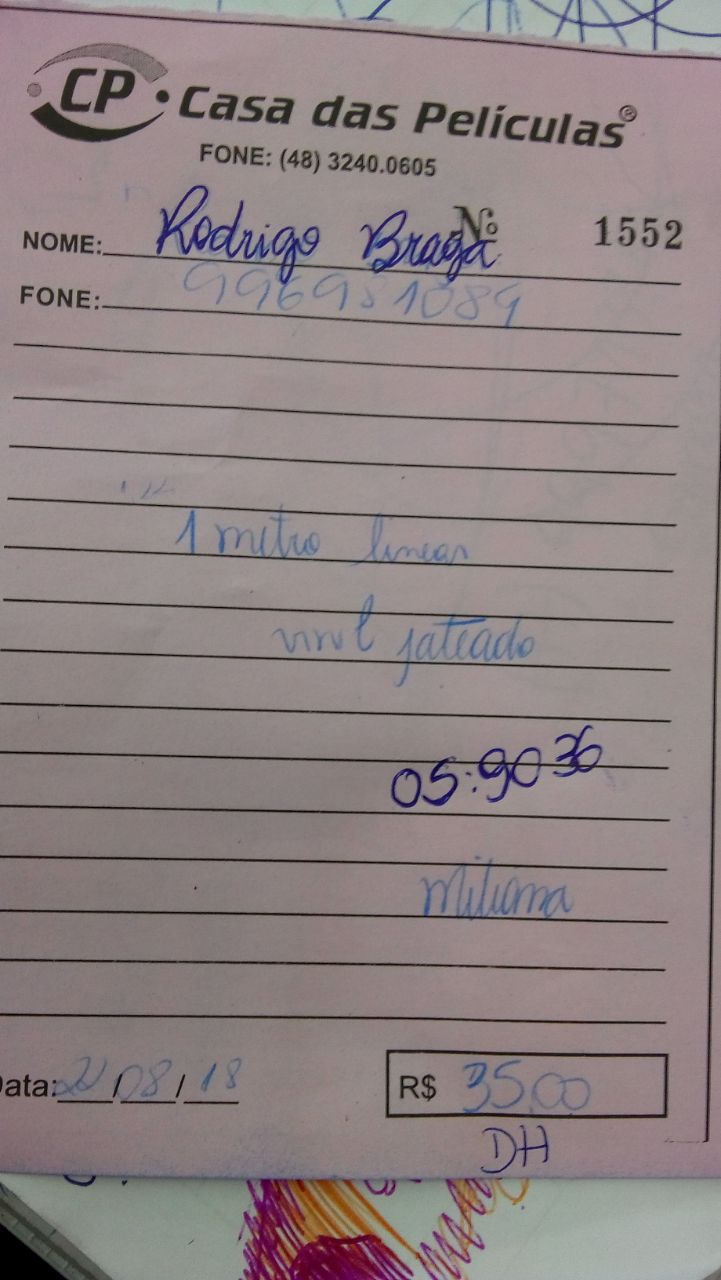 CP Casa das Películas®
FONE: (48) 3240.0605
Nº 1552
NOME: Rodrigo Braga
FONE: 996981089
1 metro linear
vinil jateado
05:9036
R$ 35,00
Data: /08/18
DH